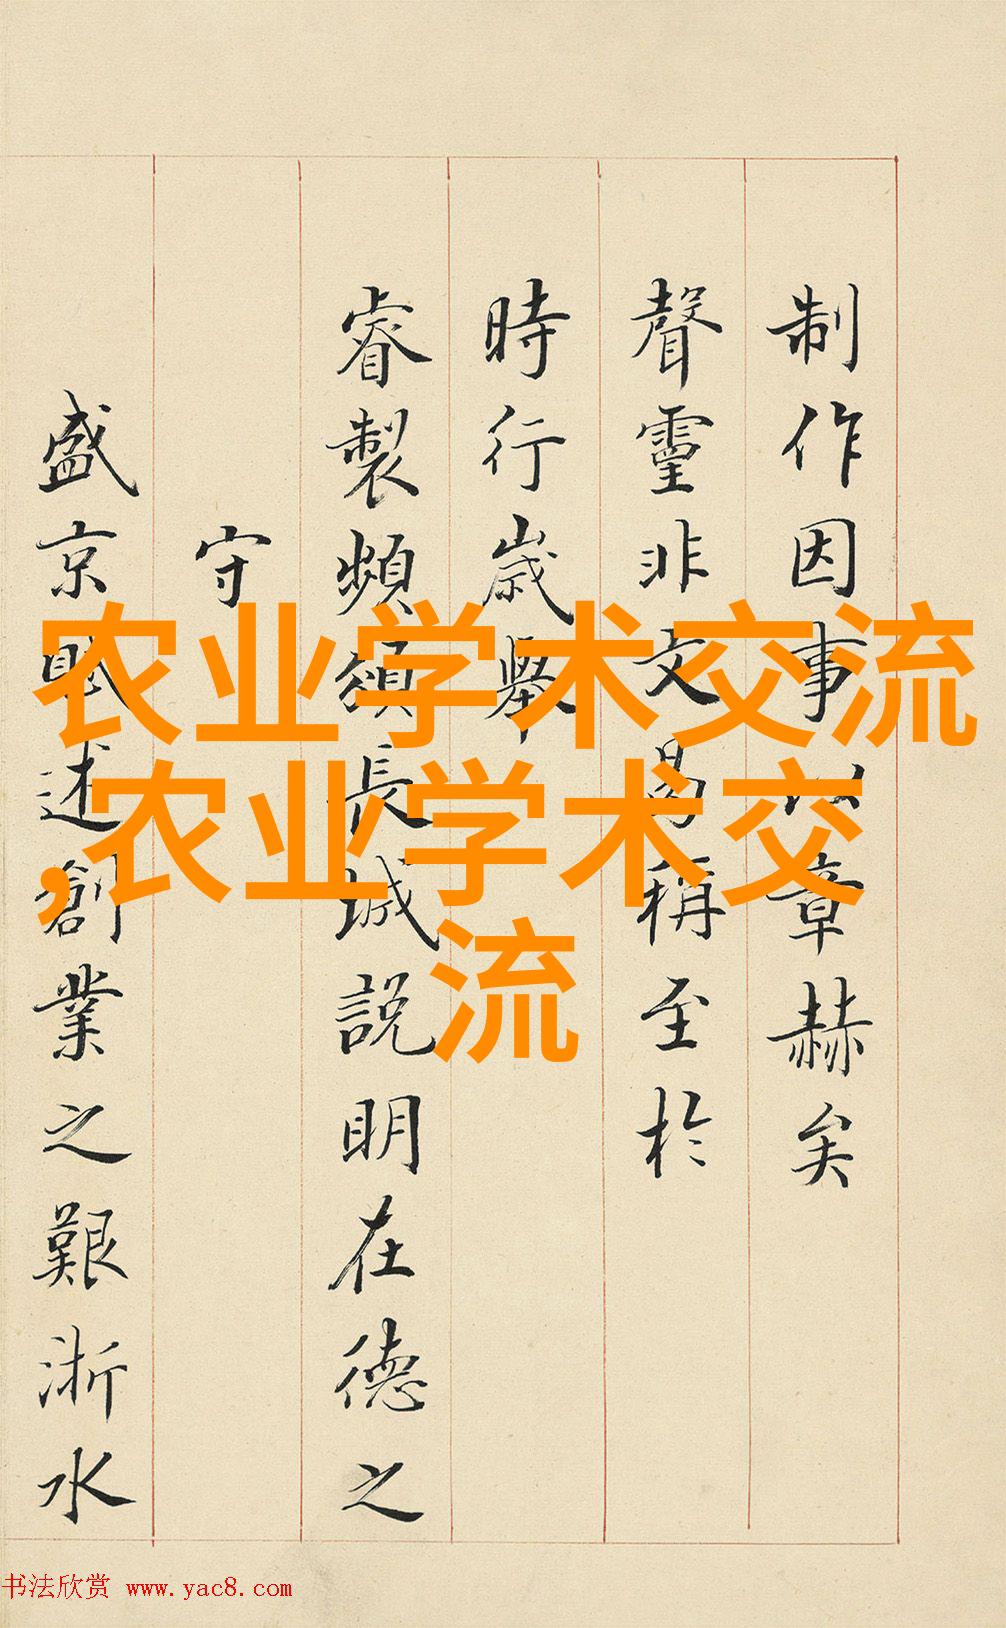 制作因事以章赫矣
聲靈非文曷稱至於
時行歲舉
睿製頻頒長城説明在德之
守
盛京賦述創業之艱淅水
农业学术交流
,农业学术交
流
书法欣赏 www.yac8.com